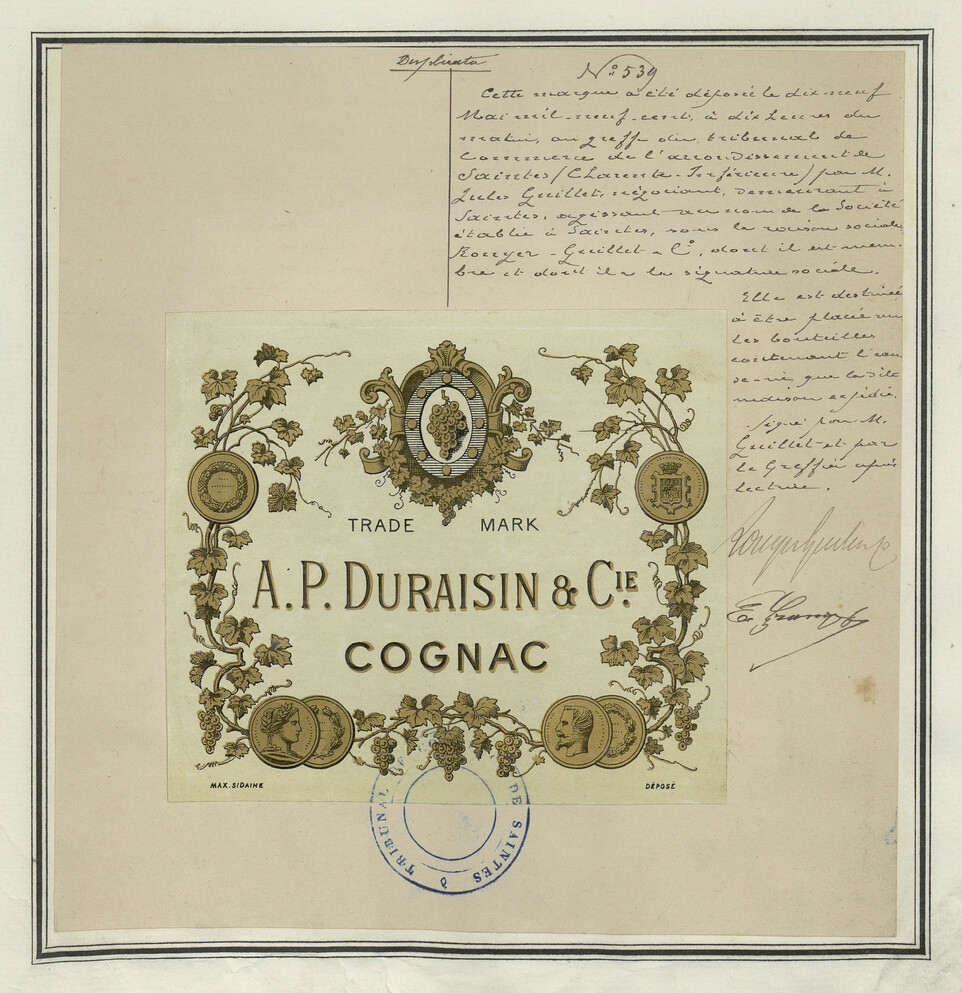 Duplicata
N° 539
Cette marque a été déposée le dix-neuf
Mai mil-neuf-cent, à dix heures du
matin, au greffe du tribunal de
Commerce de l'arrondissement de
Saintes (Charente-Inférieure) par M.
Jules Guillet, négociant, demeurant à
Saintes, agissant au nom de la Société
établie à Saintes, sous la raison sociale
Rouyer-Guillet & Cº, dont il est mem-
bre et dont il a la signature sociale.
Elle est destinée
à être placée sur
les bouteilles
contenant l'eau
de-vie que la dite
maison expédie.
Signé par M.
Guillet et par
le Greffier après
lecture.
TRADE MARK
A.P. DURAISIN & CIE
COGNAC
MAX. SIDAINE
DÉPOSÉ
TRIBUNAL DE SAINTES